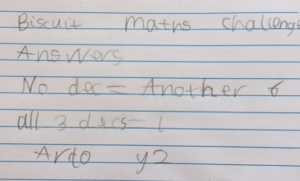 Biscuit maths challenge
Answers
No dec = Another 6
all 3 decs = 1
Arlo y2